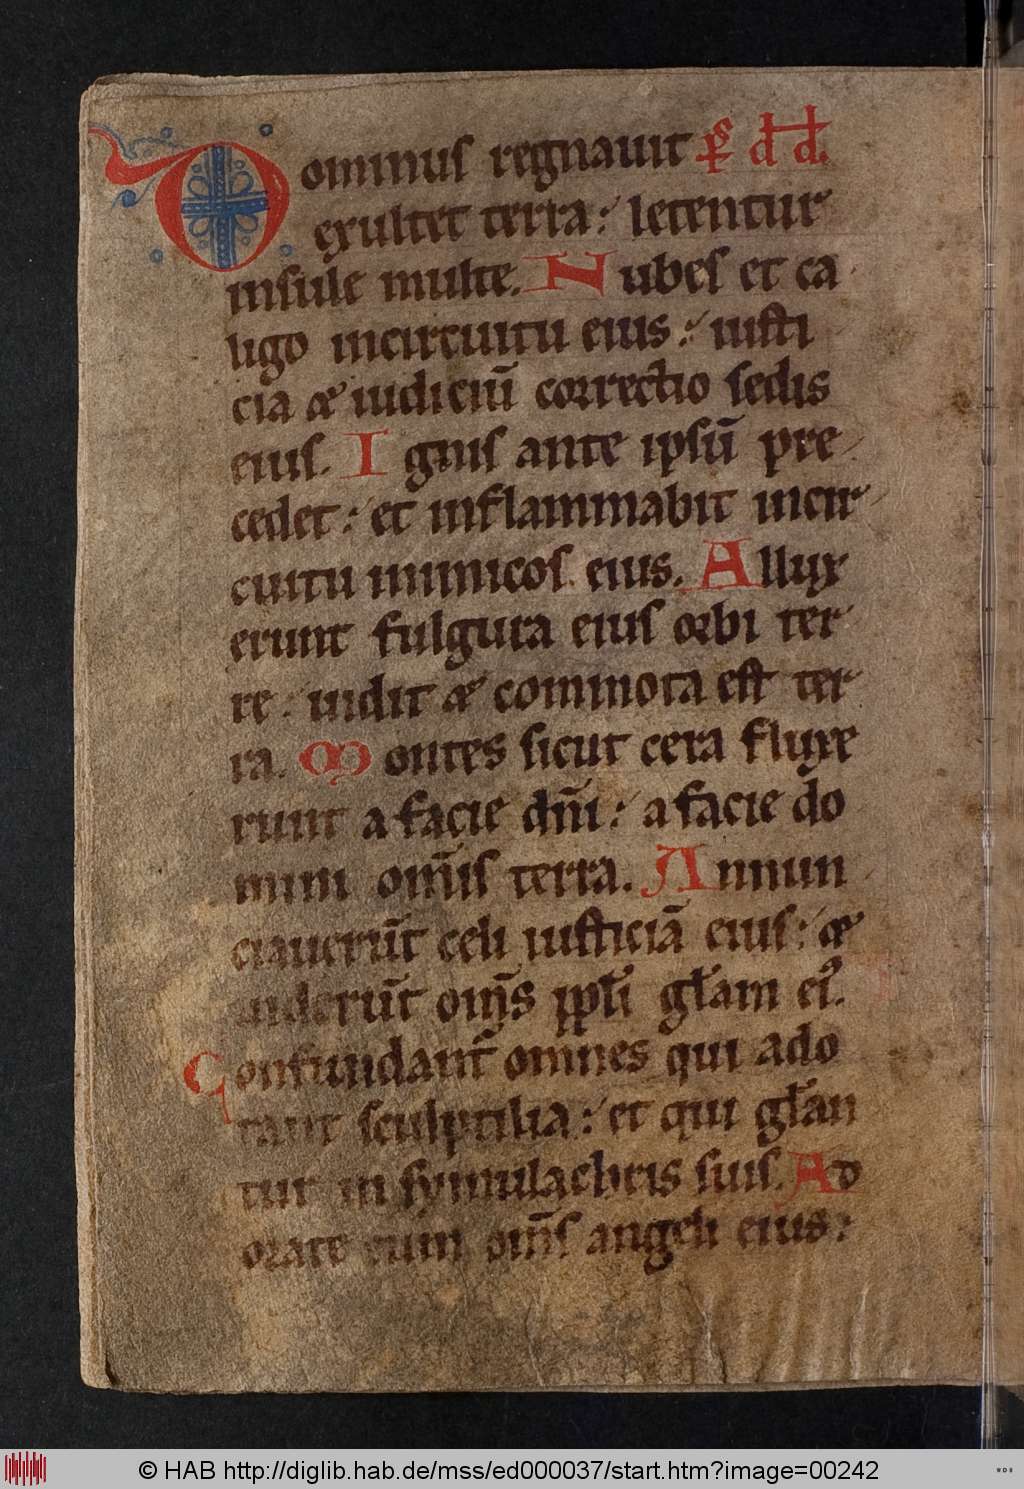 Dominus regnauit p̄s dd.
exultet terra: letentur
insule multe. Nubes et ca
ligo incircuitu eius: iusti
cia & iudiciū correctio sedis
eius. Ignis ante ipsū pre
cedet: et inflammabit incir
cuitu inimicos eius. Allux
erunt fulgura eius orbi ter
re: uidit & commota est ter
ra. Montes sicut cera fluxe
runt a facie dn̄i: a facie do
mini om̄is terra. Annun
ciauerūt celi iusticiā eius: &
uiderūt om̄s ppl̄i gl̄am ei⁹.
Confundant̄ omnes qui ado
rant sculptilia: et qui gl̄an
tur in symulachris suis. Ad
orate eum om̄s angeli eius:
© HAB http://diglib.hab.de/mss/ed000037/start.htm?image=00242